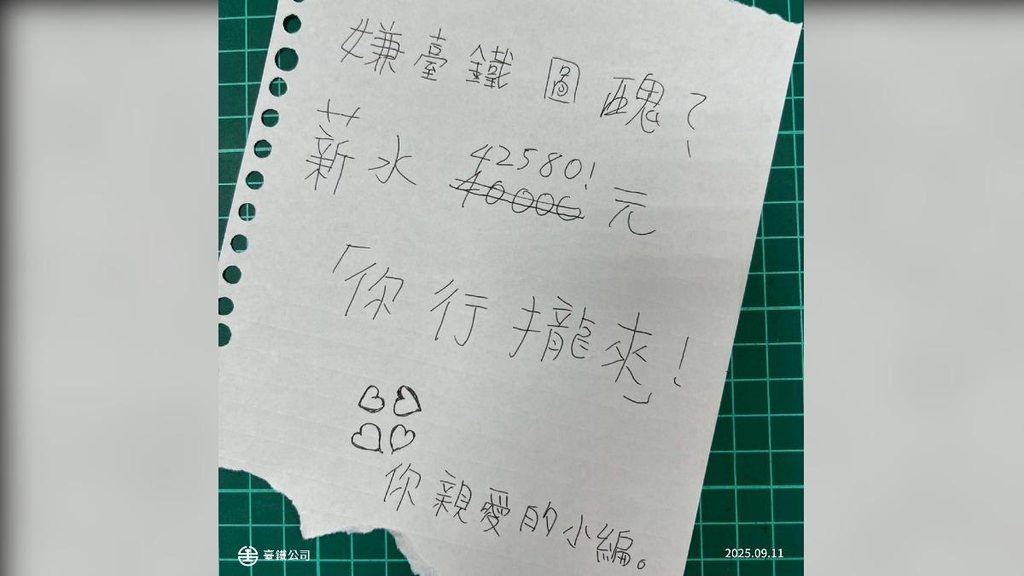 嫌臺鐵圖醜?
薪水 42580! 元
40000
「你行攏來」!
你親愛的小編。
臺鐵公司
2025.09.11